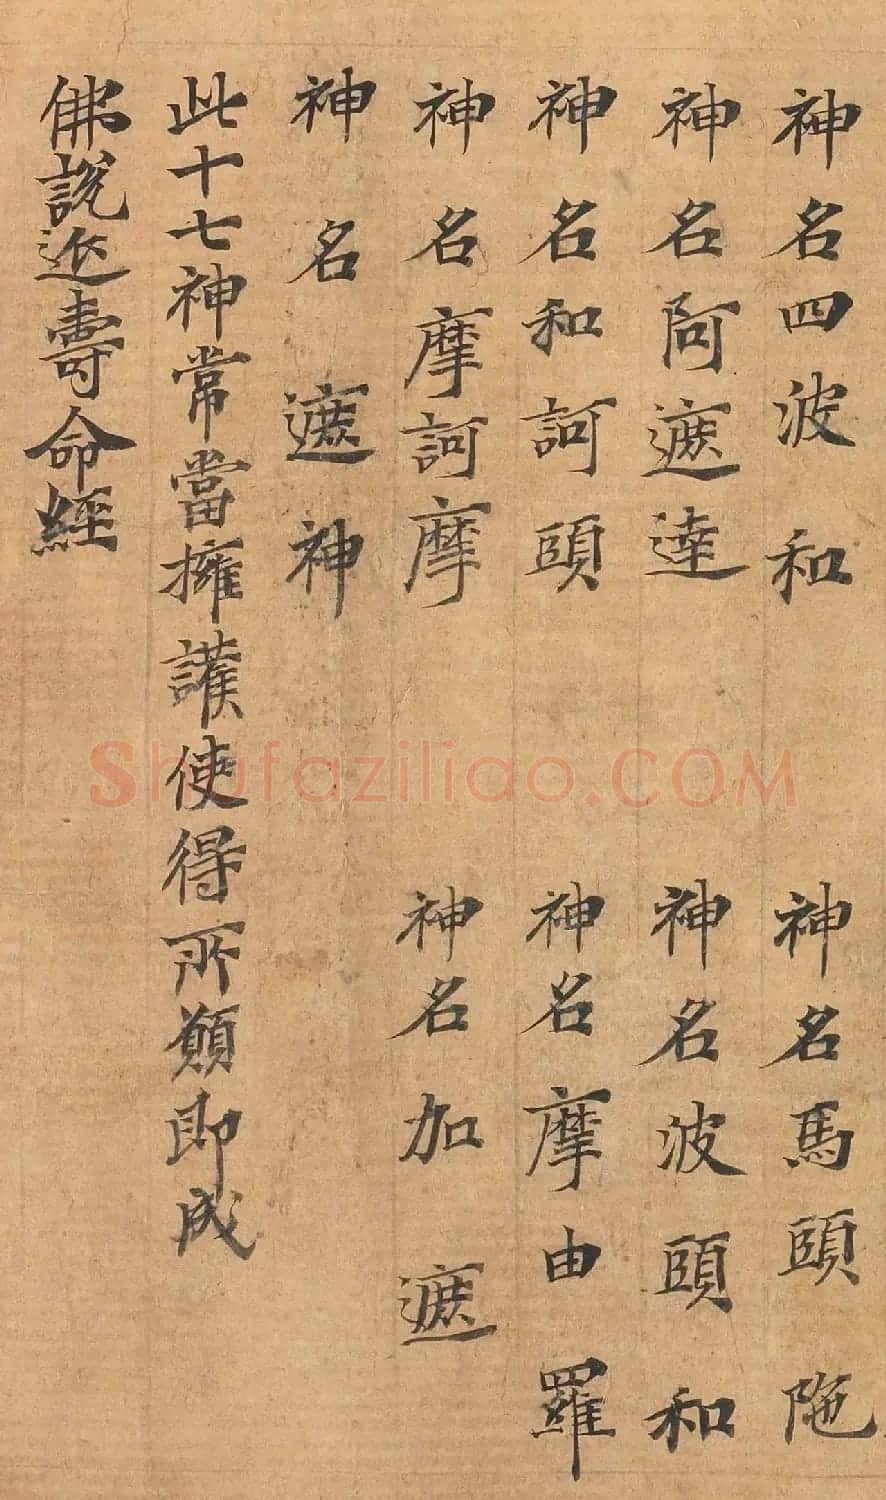 神名四波和　神名馬頤陁
神名阿遮達　神名波頤和
神名和訶頤　神名摩由羅
神名摩訶摩　神名加遮
神名遮神
此十七神常當擁護使得所願即成
佛說延壽命經
Shufaziliao.COM